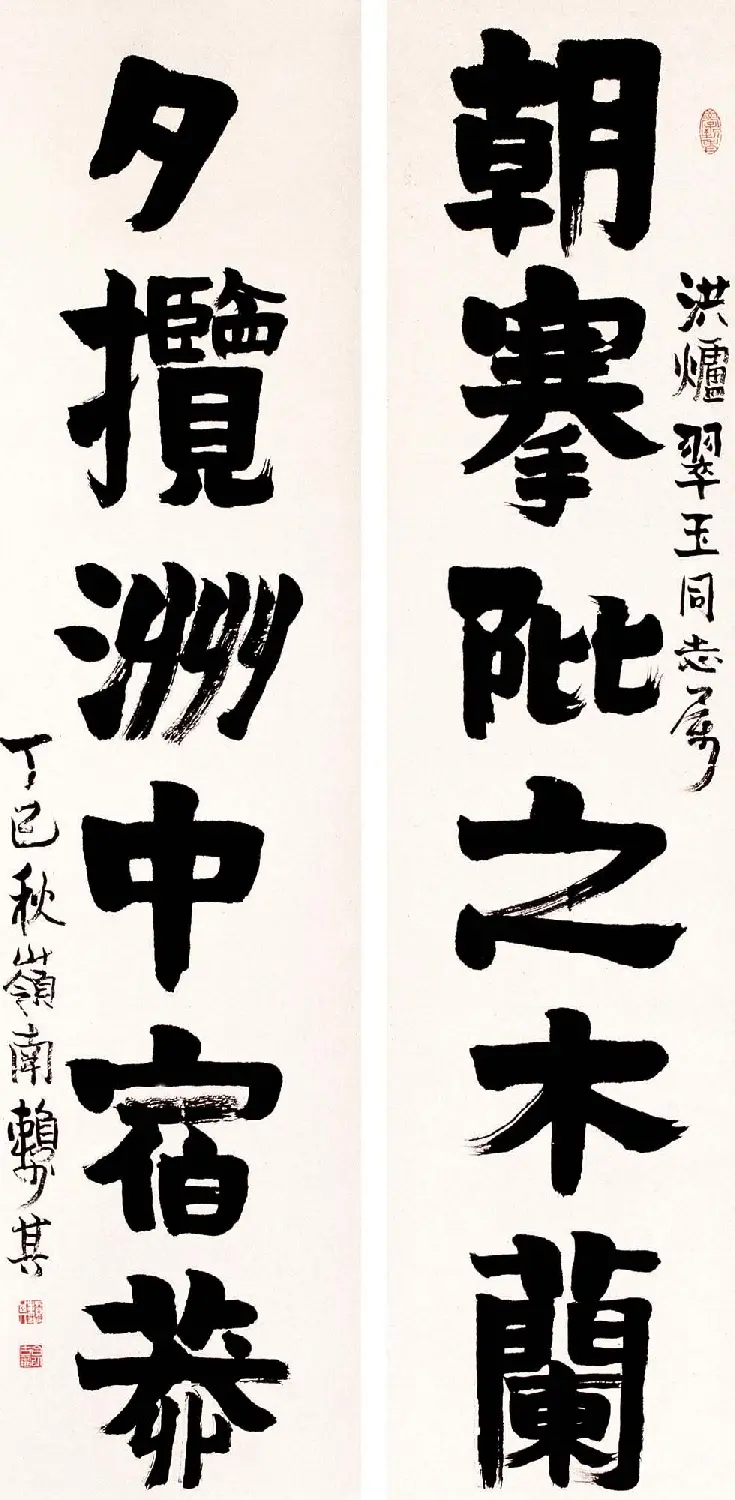 洪爐翠玉同志属
朝搴阰之木蘭
夕攬洲中宿莽
丁巳秋嶺南賴少其